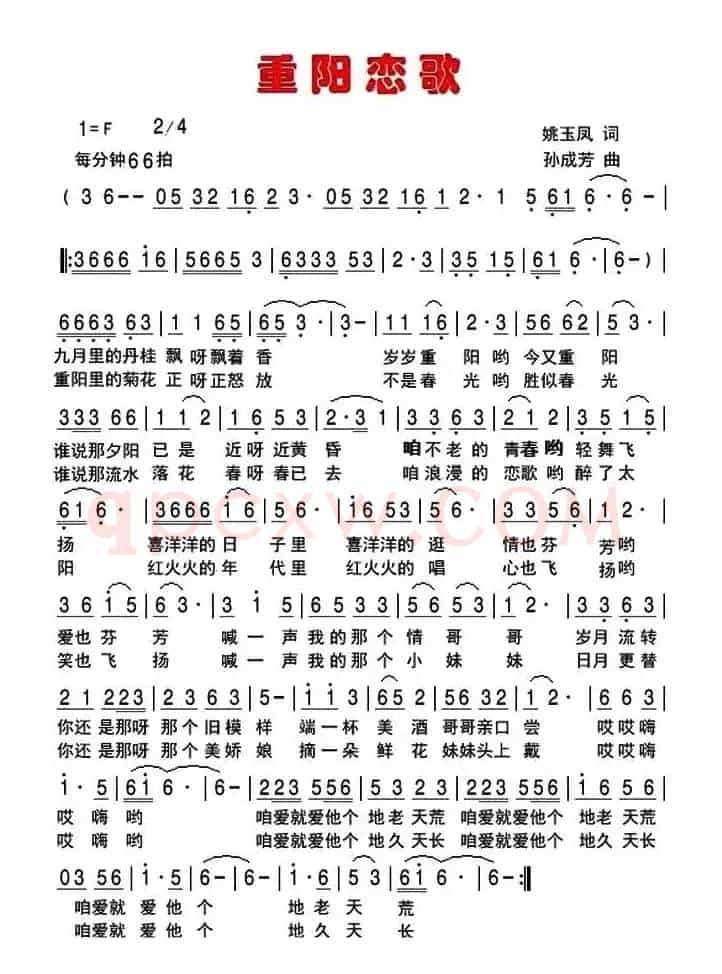 重阳恋歌
1=F 2/4 姚玉凤 词
每分钟66拍 孙成芳 曲
( 3 6 - - | 05 32 16 | 2 3 · | 05 32 16 | 2 · 1 | 5 61 | 6 · 6 - |
‖: 3666 i6 | 5665 3 | 6333 53 | 2 · 3 | 35 15 | 61 6 · | 6 - ) |
6663 63 | 1 1 65 | 65 3 · | 3 - | 11 16 | 2 · 3 | 56 62 | 3 · |
九月里的丹桂 飘 呀飘着 香 岁岁重 阳哟 今又重 阳
重阳里的菊花 正 呀正怒 放 不是春 光哟 胜似春 光
333 66 | 11 2 | 1 6 53 | 2 · 31 | 3 3 63 | 21 2 | 3 5 1 5 |
谁说那夕阳 已是 近呀近黄 昏 咱不老的 青春哟 轻舞飞
谁说那流水 落花 春呀春已 去 咱浪漫的 恋歌哟 醉了太
61 6 · | 3666 i 6 | 56 3 · | i6 53 | 5 1 2 · | 3 3 56 |
扬 喜洋洋的 日 子里 喜洋洋的 逛 情也芬 芳哟
阳 红火火的 年 代里 红火火的 唱 心也飞 扬哟
qpcxw.com
3 6 i 5 | 6 · | 3 3 · | 1656 5 6 | 56 53 | 1 2 · | 3 3 2 3 |
爱也芬 芳 喊一声我的那个情哥 哥 岁月流转
笑也飞 扬 喊一声我的那个小妹 妹 日月更替
2 1 223 | 2 3 63 | 5 - | i i 3 | 65 2 | 56 32 | 2 · | 6 6 5 |
你还是那呀 那个旧模 样 端一杯 美 酒哥哥亲口 尝 哎哎嗨
你还是那呀 那个美娇 娘 摘一朵 鲜 花妹妹头上 戴 哎哎嗨
i · 5 | 6i 6 · | 6 - | 223 556 | 5 3 2 3 | 223 556 | i6 56 |
哎 嗨 哟 咱爱就爱他个 地老天荒 咱爱就爱他个 地老天荒
哎 嗨 哟 咱爱就爱他个 地久天长 咱爱就爱他个 地久天长
03 56 | i · 5 | i 5 | 6 - | 6 - | i · 6 | 56 3 | 6i 6 · | 6 - :‖
咱爱就 爱他个 地老天 荒
咱爱就 爱他个 地久天 长